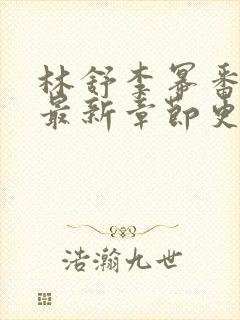 林舒李幂番
最新章节史
浩瀚九世